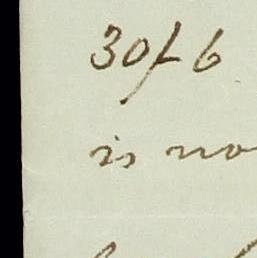 30/- 6
is no